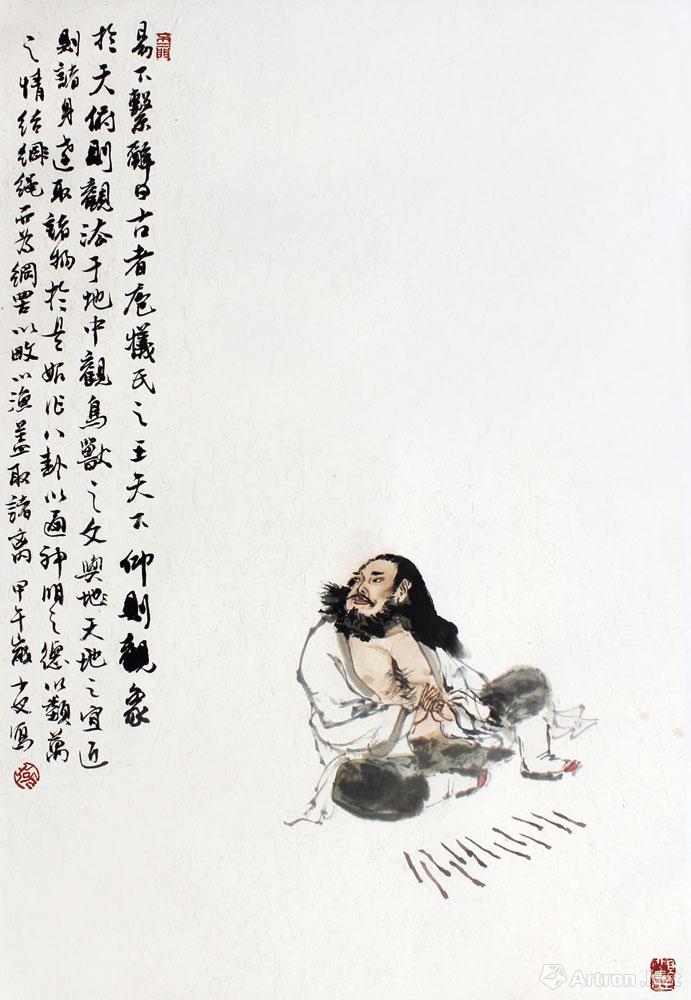 易下繫辭曰古者庖犧氏之王天下仰則觀象
於天俯則觀法于地中觀鳥獸之文與地天地之宜近
則諸身遠取諸物於是始作八卦以通神明之德以類萬
之情結繩而為網罟以畋以漁蓋取諸离甲午歲少文寫
Artron.Net